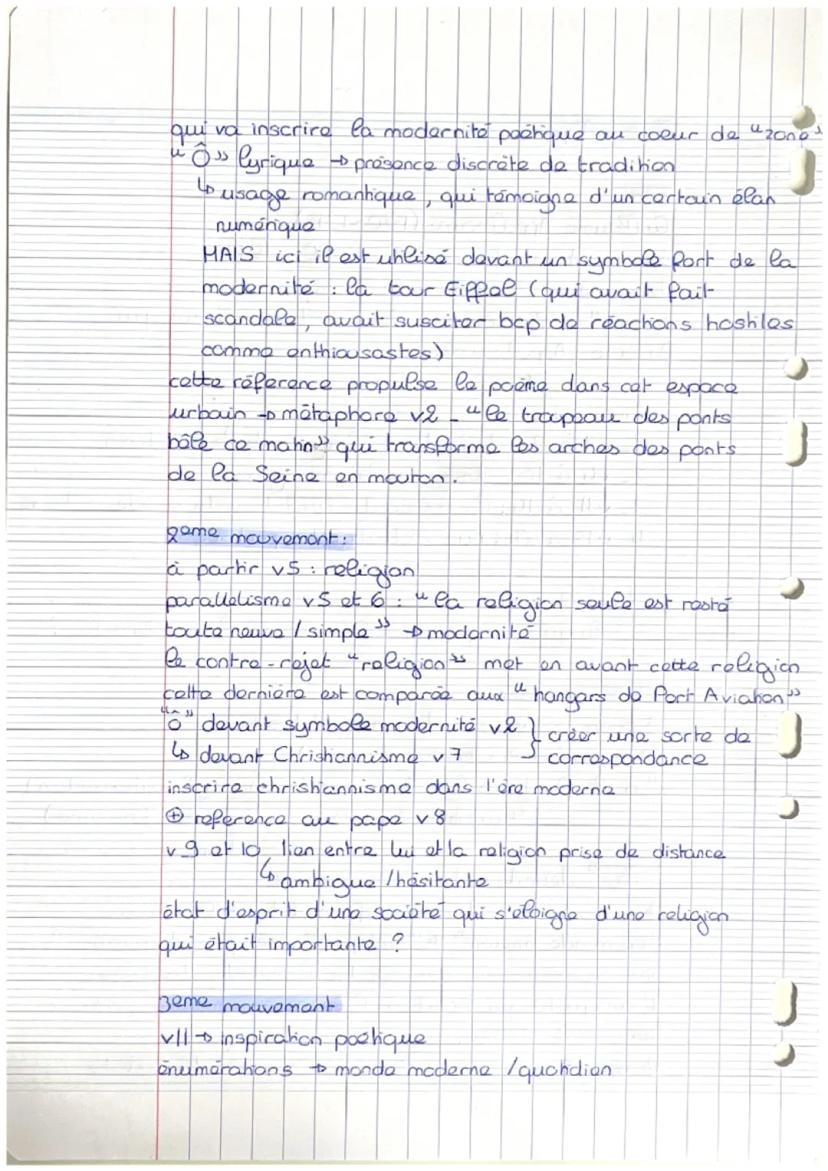 qui va inscrire la modernité poétique au coeur de "zone"
"Ô" lyrique → présence discrète de tradition
↳ usage romantique, qui témoigne d'un certain élan
numérique
MAIS ici il est utilisé devant un symbole fort de la
modernité : la tour Eiffel (qui avait fait
scandale, avait susciter bcp de réactions hostiles
comme enthiousastes)
cette référence propulse le poème dans cet espace
urbain → métaphore v2 - "le troupeau des ponts
bêle ce matin" qui transforme les arches des ponts
de la Seine en mouton.
2eme mouvement :
à partir v5 : religion
parallélisme v5 et 6 : "la religion seule est resté
toute neuve / simple" → modernité
le contre-rejet "religion" met en avant cette religion
cette dernière est comparée aux "hangars de Port Aviation"
"ô" devant symbole modernité v2 } créer une sorte de
↳ devant Christiannisme v7 correspondance
inscrire christiannisme dans l'ère moderne
⊕ reference au pape v8
v9 et 10 lien entre lui et la religion prise de distance
↳ ambigue / hésitante
état d'esprit d'une société qui s'eloigne d'une religion
qui était importante ?
3eme mouvement
v11 → inspiration poétique
énumérations → monde moderne / quotidien